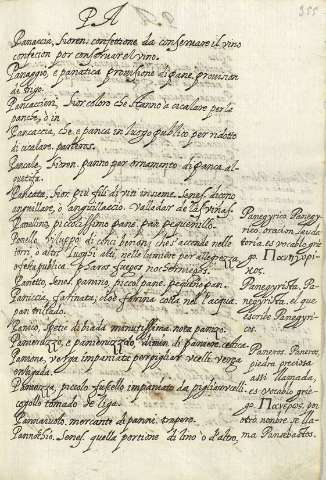 P A
355
Panaccia, fioren. confettione da conservare il vino
confecion por conservar el vino.
Panaggio, e panatica provisione di pane, provision
de trigo.
Pancaccieri, fior. coloro che stanno a cicalare per la
pancie, ò in
Pancaccia, che, e panca in luogo publico per ridotto
di cicalare. panteros.
Pancale, fioren. panno per ornamento di panca al-
Pancata, fior. più fili di viti insieme. Senes. dicono
anguillare, ò anguillaccio. valladar de la viñas.
Panellino, piccolissimo pane. pan pequeñillo.
Panello, viluppo di cenci benugni che s'accende nelle
torri, o altri luoghi alti, nelle lumiere per allegrezza
o festa publica. Paros fuegos nocherniegos.
Panetto, Senes. pannino, piccol pane. pequeño pan.
Paniccia, farinata, cioè farina cotta nel l'acqua.
pan trillado.
Panico, spetie di biada minutissima nota panizo.
Panieruzzo, e panieruzzolo, dimin. di paniere, cestica.
Panione, verga impaniata per pigliare ucelli, verga
enligada.
Paniuzza, piccolo fuscello impaniato da pigliar ucelli
cogollo tomado de liga.
Pannaiuolo, mercante di panni, trapero.
Pannochio, Senes. quella portione di lino o d'altro,
Panegyrico Panegy-
rico. oracion lauda-
toria. es vocablo grie-
go. Πανηγυρι-
κος.
Panegyrista, Pa-
negyrista, el que
escrive Panegyri-
cos.
Paneros, Paneros,
piedra preciosa
assi llamada,
es vocablo grie-
go. Πανερος, por
otro nombre se lla-
ma Pansebastos.